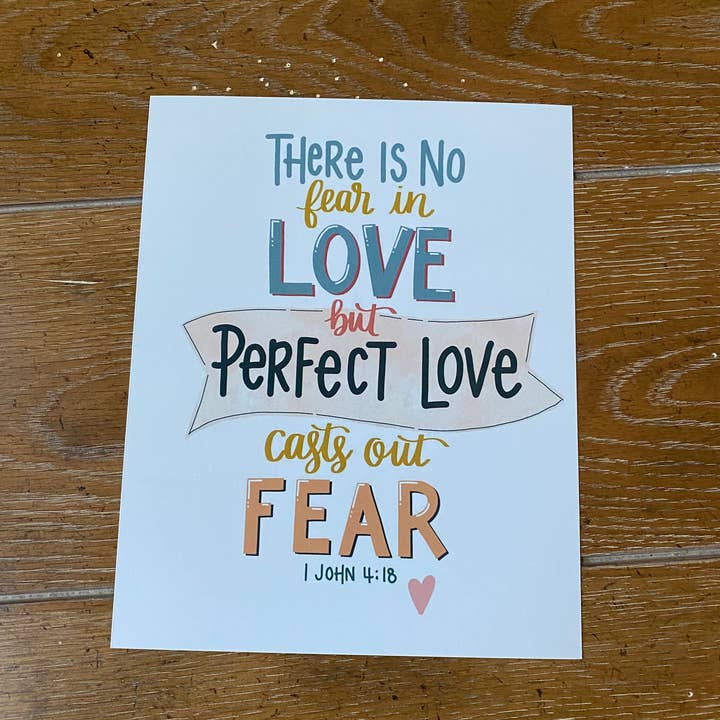 THeRe IS NO
fear in
LOVE
but
PeRFeCT LOVe
casts out
FEAR
1 JOHN 4:18